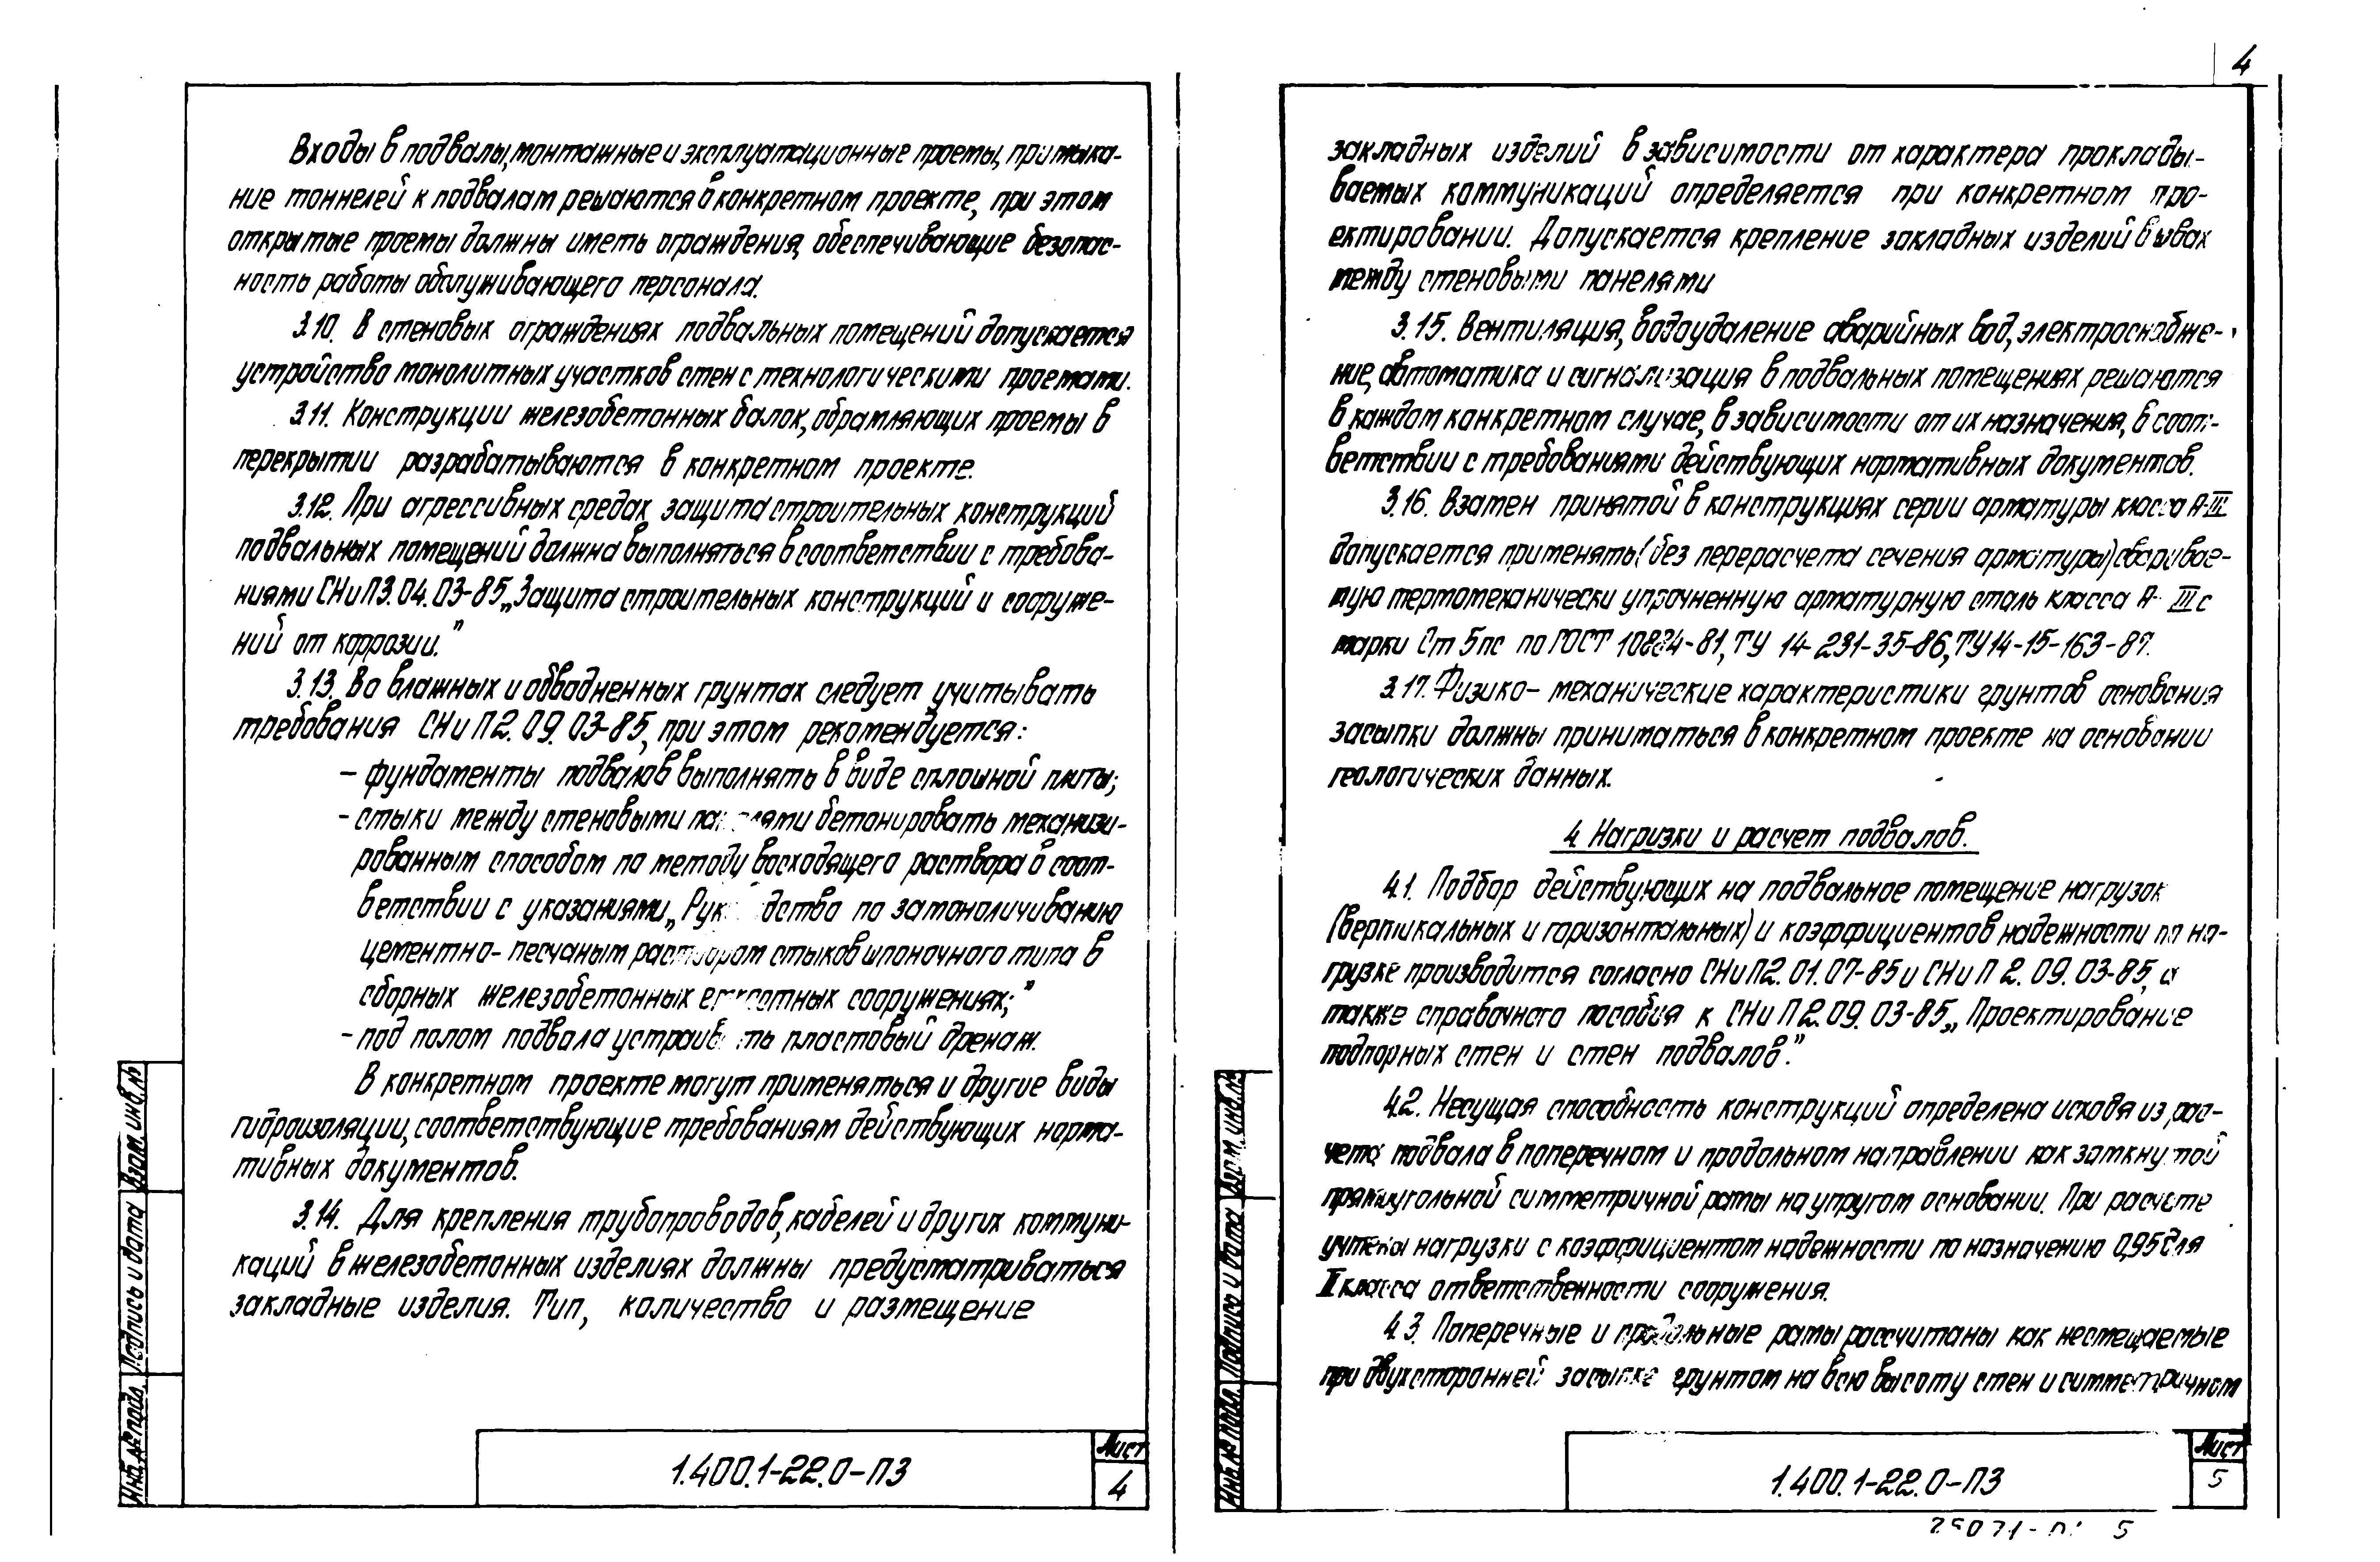 4
Входы в подвалы, монтажные и эксплуатационные проемы, примыка-
ние тоннелей к подвалам решаются в конкретном проекте, при этом
открытые проемы должны иметь ограждения, обеспечивающие безопас-
ность работы обслуживающего персонала.
3.10. В стеновых ограждениях подвальных помещений допускается
устройство монолитных участков стен с технологическими проемами.
3.11. Конструкции железобетонных балок, обрамляющих проемы в
перекрытии разрабатываются в конкретном проекте.
3.12. При агрессивных средах защита строительных конструкций
подвальных помещений должна выполняться в соответствии с требова-
ниями СНиП 3.04.03-85 „Защита строительных конструкций и сооруже-
ний от коррозии."
3.13. Во влажных и обводненных грунтах следует учитывать
требования СНиП 2.09.03-85, при этом рекомендуется:
– фундаменты подвалов выполнять в виде сплошной плиты;
- стыки между стеновыми панелями бетонировать механизи-
рованным способом по методу восходящего раствора в соот-
ветствии с указаниями „Руководство по замоноличиванию
цементно-песчаным раствором стыков шпоночного типа в
сборных железобетонных емкостных сооружениях;"
- под полом подвала устраивать пластовый дренаж.
В конкретном проекте могут применяться и другие виды
гидроизоляции, соответствующие требованиям действующих норма-
тивных документов.
3.14. Для крепления трубопроводов, кабелей и других коммуни-
каций в железобетонных изделиях должны предусматриваться
закладные изделия. Тип, количество и размещение
Инв. № подл. Подпись и дата Взам. инв. №
1.400.1-22.0-ПЗ
Лист
4
закладных изделий в зависимости от характера проклады-
ваемых коммуникаций определяется при конкретном про-
ектировании. Допускается крепление закладных изделий в швах
между стеновыми панелями
3.15. Вентиляция, водоудаление аварийных вод, электроснабже-
ние, автоматика и сигнализация в подвальных помещениях решаются
в каждом конкретном случае, в зависимости от их назначения, в соот-
ветствии с требованиями действующих нормативных документов.
3.16. Взамен принятой в конструкциях серии арматуры класса А-III
допускается применять (без перерасчета сечения арматуры) сваривае-
мую термомеханически упрочненную арматурную сталь класса А-IIIс
марки Ст 5пс по ГОСТ 10884-81, ТУ 14-231-35-86, ТУ 14-15-163-87.
3.17. Физико-механические характеристики грунтов основания
засыпки должны приниматься в конкретном проекте на основании
геологических данных.
4 Нагрузки и расчет подвалов.
4.1. Подбор действующих на подвальное помещение нагрузок
(вертикальных и горизонтальных) и коэффициентов надежности по на-
грузке производится согласно СНиП 2.01.07-85 и СНиП 2.09.03-85, а
также справочного пособия к СНиП 2.09.03-85 „Проектирование
подпорных стен и стен подвалов."
4.2. Несущая способность конструкций определена исходя из рас-
чета подвала в поперечном и продольном направлении как замкнутой
прямоугольной симметричной рамы на упругом основании. При расчете
учтены нагрузки с коэффициентом надежности по назначению 0,95 для
II класса ответственности сооружения.
4.3. Поперечные и продольные рамы рассчитаны как несмещаемые
при двухсторонней засыпке грунтом на всю высоту стен и симметричном
Инв. № подл. Подпись и дата Взам. инв. №
1.400.1-22.0-ПЗ
Лист
5
5